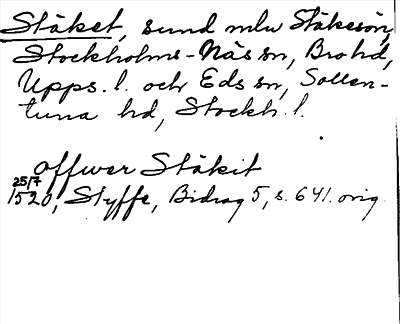 Stäket, sund mlw Stäkesön,
Stockholms-Näs sn, Bro hd,
Upps. l. och Eds sn, Sollen-
tuna hd, Stockh. l.
offwer Stäkit
25/7
1520, Styffe, Bidrag 5, s. 641. orig.